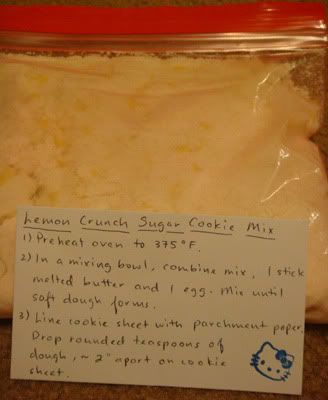 Lemon Crunch Sugar Cookie Mix
1) Preheat oven to 375°F.
2) In a mixing bowl, combine mix, 1 stick
melted butter and 1 egg. Mix until
soft dough forms.
3) Line cookie sheet with parchment paper.
Drop rounded teaspoons of
dough, ~ 2" apart on cookie
sheet.